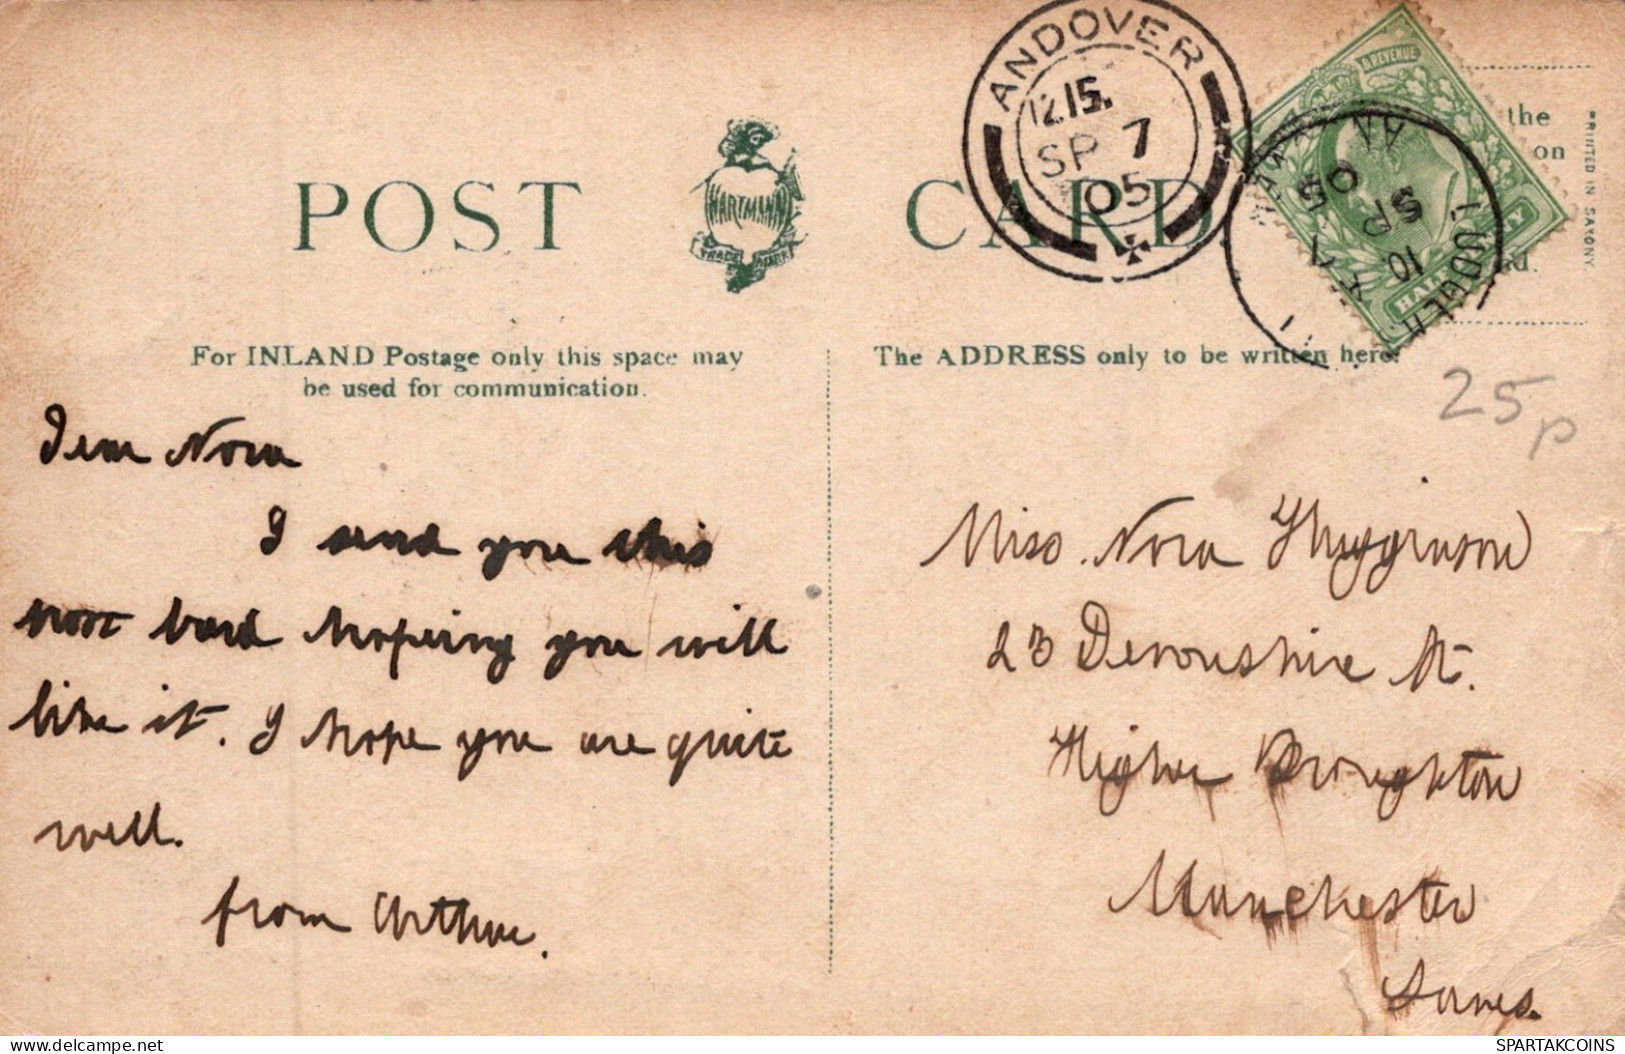 POST CARD.
HARTMANN
TRADE MARK
ANDOVER
12.15.
SP 7
05
& REVENUE
HALF
Y
10
SP 5
05
the
on
d.
PRINTED IN SAXONY.
For INLAND Postage only this space may
be used for communication.
The ADDRESS only to be written here.
25p
Dear Nora
I send you this
post card hopeing you will
like it. I hope you are quite
well.
from Arthur.
Miss. Nora
23 Devonshire St.
Higher Broughton
Manchester
Lancs.
SPARTAKCOINS